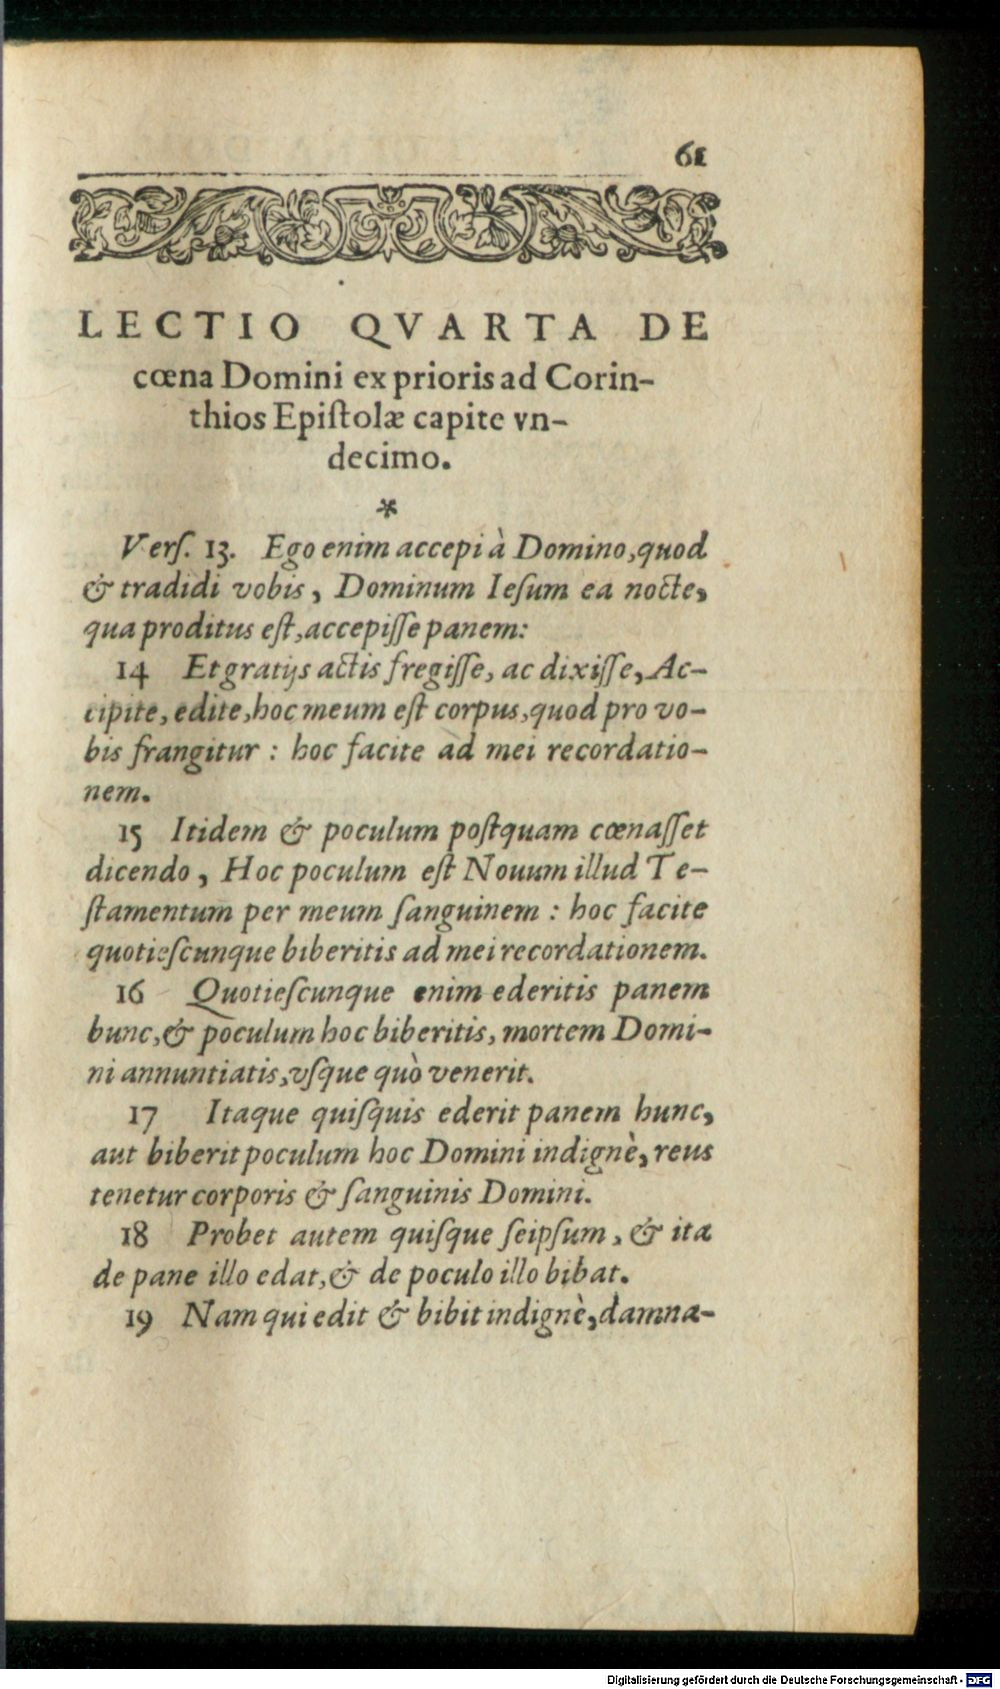 61
LECTIO QVARTA DE
cœna Domini ex prioris ad Corin-
thios Epiſtolæ capite vn-
decimo.
*
Verſ. 13. Ego enim accepi à Domino, quod
& tradidi vobis, Dominum Ieſum ea nocte,
qua proditus eſt, accepiſſe panem:
14 Et gratijs actis fregiſſe, ac dixiſſe, Ac-
cipite, edite, hoc meum eſt corpus, quod pro vo-
bis frangitur : hoc facite ad mei recordatio-
nem.
15 Itidem & poculum poſtquam cœnaſſet
dicendo, Hoc poculum eſt Nouum illud Te-
ſtamentum per meum ſanguinem : hoc facite
quotieſcunque biberitis ad mei recordationem.
16 Quotieſcunque enim ederitis panem
hunc, & poculum hoc biberitis, mortem Domi-
ni annuntiatis, vſque quò venerit.
17 Itaque quiſquis ederit panem hunc,
aut biberit poculum hoc Domini indignè, reus
tenetur corporis & ſanguinis Domini.
18 Probet autem quiſque ſeipſum, & ita
de pane illo edat, & de poculo illo bibat.
19 Nam qui edit & bibit indignè, damna-
Digitalisierung gefördert durch die Deutsche Forschungsgemeinschaft - DFG